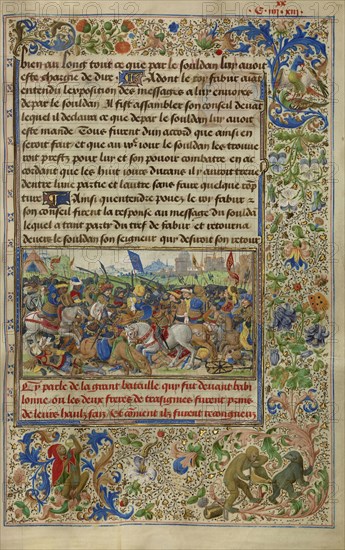 xx
C iiii xiii
bien au long tout ce que par le souldan luy auoit
este chargie de dire Et adont le roy fabur aiãt
entendu lexposition des messages a luy enuoiez
de par le souldan Il fist assembler son conseil deuãt
lequel il declaira ce que depar le souldan luy auoit
este mande Tous furent dun accord que ainsi en
feroit fait et que au iour le souldan les trouue
roit prestz pour luy et son pouoir combatre en ac
cordant que les huit iours durans il y auroit treue
dentre lune partie et lautre sans faire quelque rõp
ture Ainsi quentendre pouez le roy fabur
son conseil firent la response au message du souldã
lequel atant partit du tref de fabur et retourna
deuers le souldan son seigneur qui desiroit son retour
Cy parle de la grant bataille quy fut deuant babi
lonne ou les deux freres de trasignies furent prins
de leurs haulz fais et cõment ilz furent recongneuz